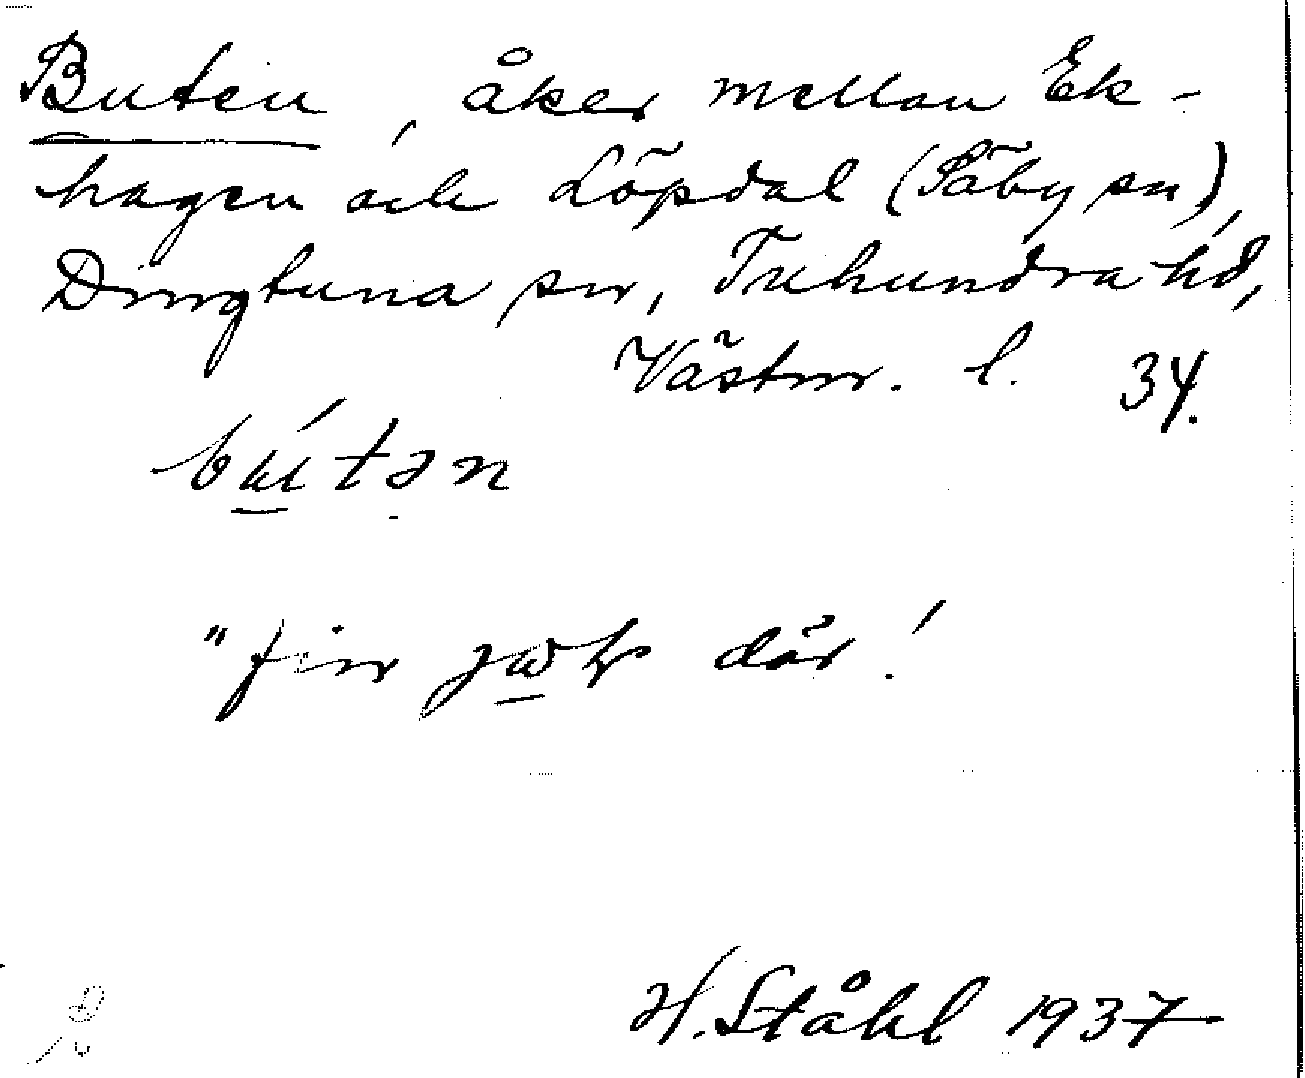 Buten, åker mellan Ek-
hagen och Löpdal (Säby sn),
Dingtuna sn, Tuhundra hd,
Västm. l. 34.
bú̱tən
"fin där!
H. Ståhl 1937